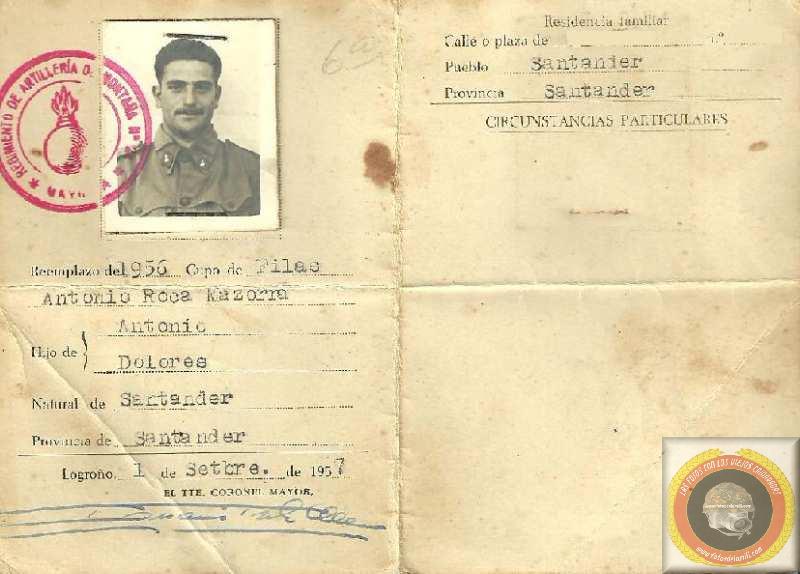 REGIMIENTO DE ARTILLERÍA D MONTAÑA Nº
MAYOR
6ª
Reemplazo del 1956 Cupo de Filas
Antonio Roca Mazorra
Hijo de
Antonio
Dolores
Natural de Santander
Provincia de Santander
Logroño, 1 de Setbre. de 1957
EL TTE. CORONEL MAYOR,
Residencia familiar
Calle o plaza de n.º
Pueblo Santander
Provincia Santander
CIRCUNSTANCIAS PARTICULARES
LAS FOTOS CON LOS VIEJOS CAMARADAS